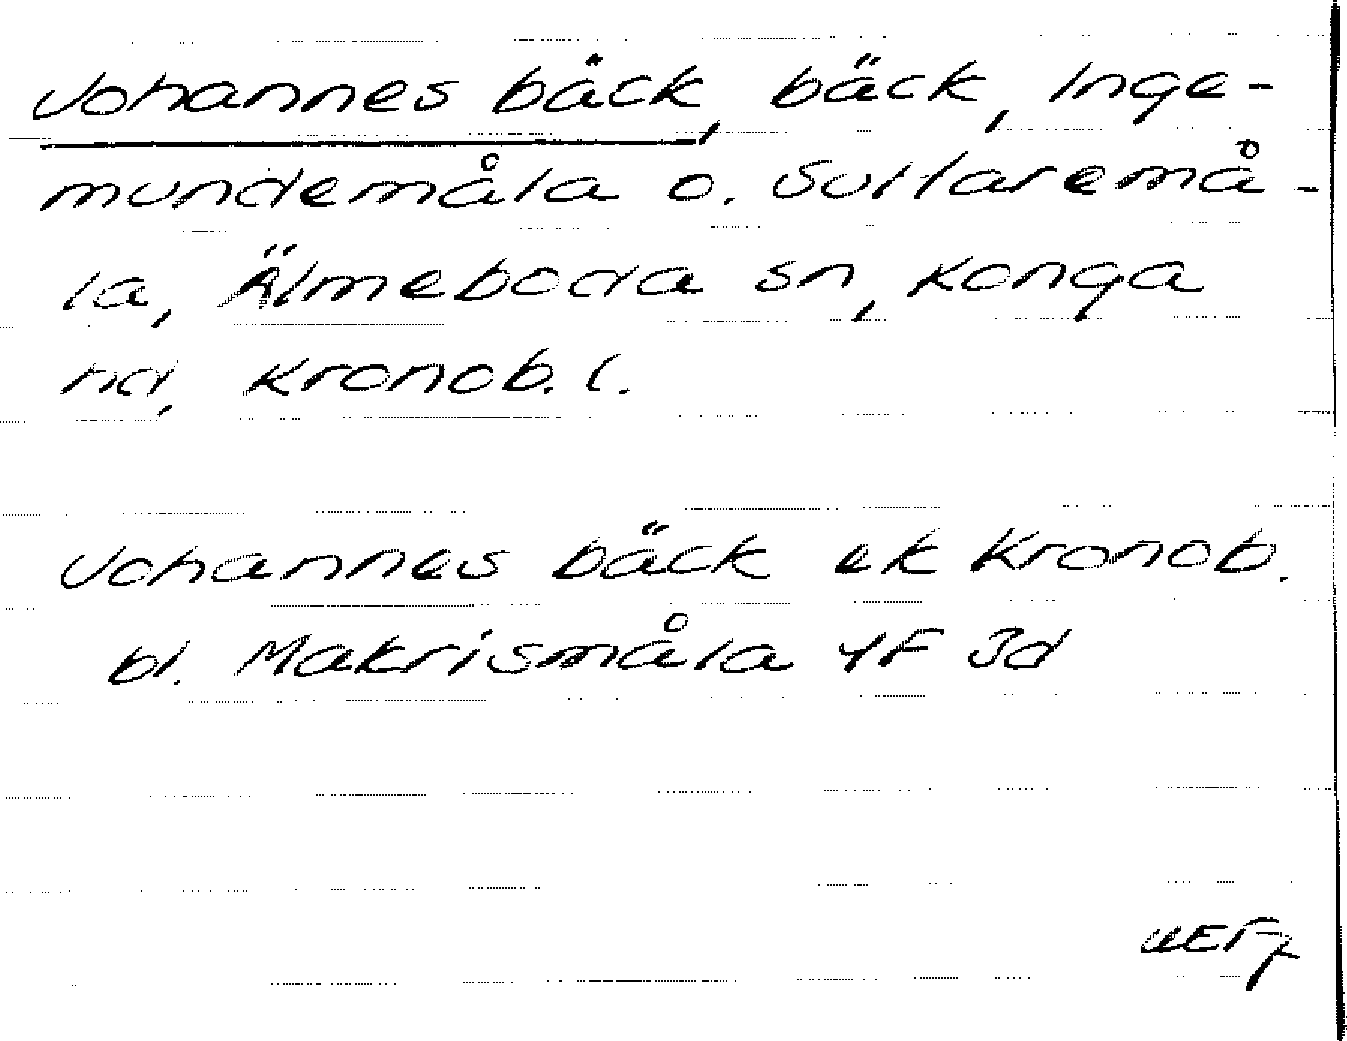 Johannes bäck, bäck, Inge-
mundemåla o. Sutaremå-
la, Älmeboda sn, Konga
hd, Kronob. l.
Johannes bäck ek Kronob.
bl. Makrismåla 4F 3d